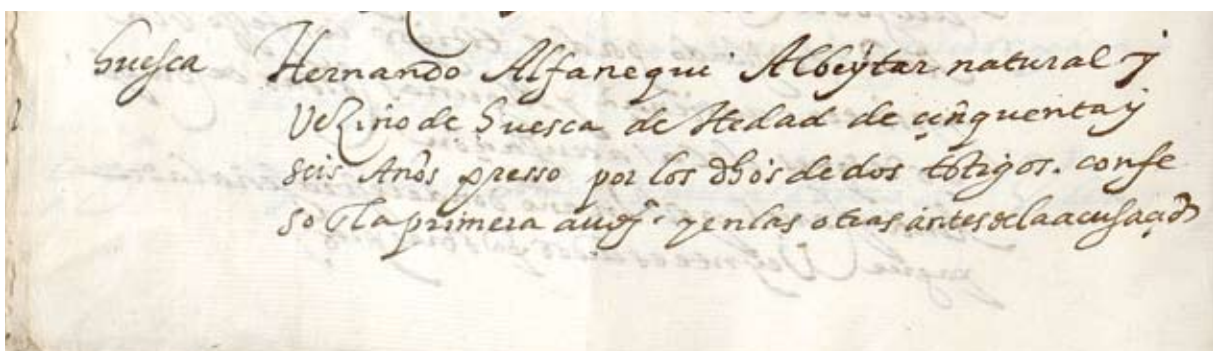 huesca Hernando Alfaneque Albeytar natural y
Vezino de huesca de Hedad de cinquenta y
seis Años presso por los dhõs de dos testigos. confe
so ẽ la primera audi.ª y en las otras antes de la acusaçiõ